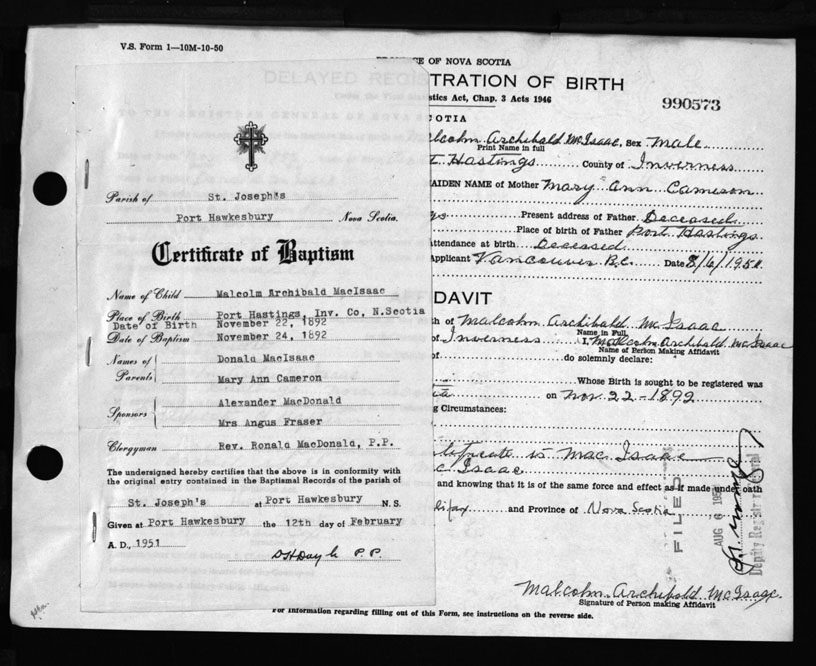 V.S. Form 1—10M-10-50
E OF NOVA SCOTIA
DELAYED REGISTRATION OF BIRTH
stics Act, Chap. 3 Acts 1946
990573
COTIA
alcolm Archibald McIsaac, Sex Male
Print Name in full
t Hastings County of Inverness
AIDEN NAME of Mother Mary Ann Cameron
gs Present address of Father Deceased
Place of birth of Father Port Hastings
Attendance at birth Deceased
Applicant Vancouver B.C. Date 8/6/1951
Parish of St. Joseph's
Port Hawkesbury Nova Scotia.
Certificate of Baptism
Name of Child Malcolm Archibald MacIsaac
Place of Birth Port Hastings, Inv. Co, N.Scotia
Date of Birth November 22, 1892
Date of Baptism November 24, 1892
Names of Parents Donald MacIsaac
Mary Ann Cameron
Sponsors Alexander MacDonald
Mrs Angus Fraser
Clergyman Rev. Ronald MacDonald, P.P.
The undersigned hereby certifies that the above is in conformity with
the original entry contained in the Baptismal Records of the parish of
St. Joseph's at Port Hawkesbury N.S.
Given at Port Hawkesbury the 12th day of February
A. D., 1951
P. P.
DAVIT
th of Malcolm Archibald McIsaac
Name in Full
of Inverness I, Malcolm Archibald McIsaac
Name of Person Making Affidavit
of do solemnly declare:
Whose Birth is sought to be registered was
ia on Nov. 22-1892
g Circumstances:
tificate is MacIsaac
c Isaac
and knowing that it is of the same force and effect as if made under oath
lifax and Province of Nova Scotia
FILED
AUG 6 1951
Deputy Registrar General
Malcolm Archibald McIsaac
Signature of Person making Affidavit
For information regarding filling out of this Form, see instructions on the reverse side.